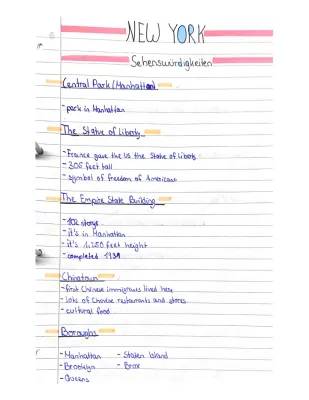 NEW YORK
Sehenswürdigkeiten
Central Park (Manhattan)
- park in Manhattan
The Statue of Liberty
- France gave the US the Statue of Liberty
- 305 feet tall
- symbol of freedom of Americans
The Empire State Building
- 102 storys
- it's in Manhattan
- it's 1.250 feet height
- completed 1931
Chinatown
- first Chinese immigrants lived here
- lots of Chinese restaurants and stores
- cultural food
Boroughs
- Manhattan - Staten Island
- Brooklyn - Bronx
- Queens